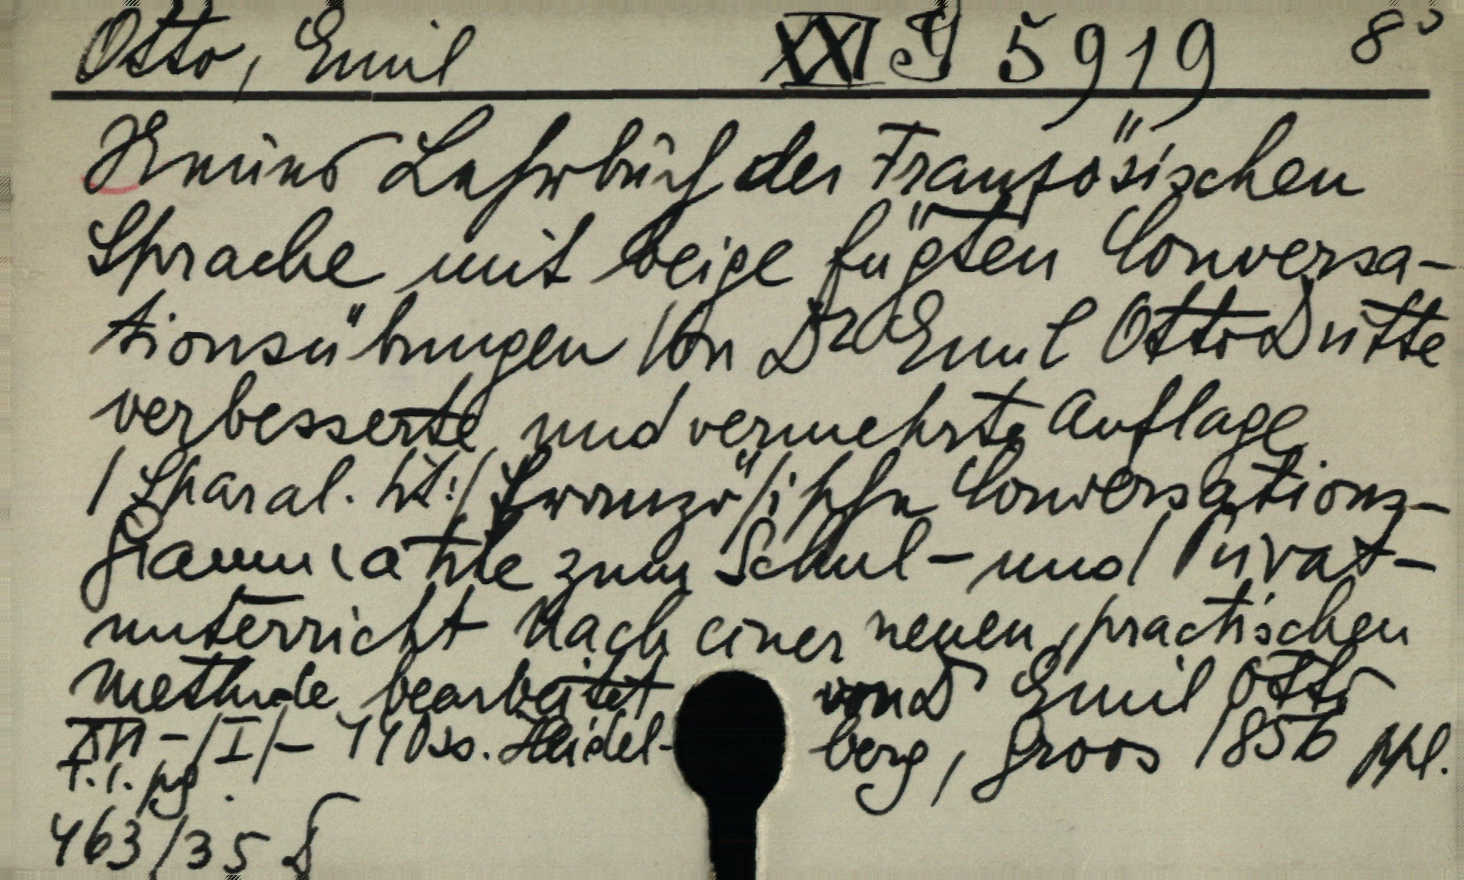 Otto, Emil XXI J 5919 8°
Neues Lehrbuch der Französischen
Sprache mit beigefügten Conversa-
tionsübungen Von Dr Emil Otto Dritte
verbesserte und vermehrte Auflage
/Paral. tit:/ Französische Conversations-
Grammatik zum Schul- und Privat-
unterricht Nach einer neuen, practischen
Methode bearbeitet von Dr Emil Otto
XII-/I/- 440 ss. Heidelberg, Groos 1856 ppl.
463/35